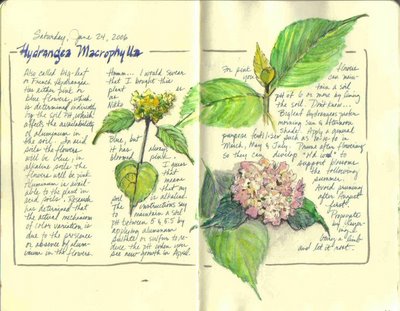 Saturday, June 24, 2006
Hydrangea Macrophylla
Also called big-leaf
or French Hydrangea
has either pink or
blue flowers, which
is determined indirectly
by the soil pH which
affects the availability
of aluminum in
the soil. In acid
soils the flowers
will be blue; in
alkaline soils the
flowers will be pink.
Aluminum is avail-
able to the plant in
acid soils. Research
has determined that
the actual mechanism
of color variation is
due to the presence
or absence of alum-
inum in the flowers.
Hmmm... I would swear
that I bought this
plant as
Blue, but it
has always
bloomed pink.
I guess
that
means
that my
soil is alkaline.
The instructions say
to maintain a soil
pH between 5 & 5.5 by
applying aluminum
sulfate or sulfur to re-
duce the pH when you
see new growth in April.
For pink flowers
you can main-
tain a soil
pH of 6 or more by liming
the soil. Don't know...
Bigleaf hydrangeas prefer
morning sun & afternoon
shade. Apply a general
purpose fertilizer such as 10-10-10 in
March, May & July. Prune after flowering
so they can develop "old wood" to
support blooms
the following
summer.
Avoid pruning
after August
first.
Propagate
by layer-
ing;
bury a limb
and let it root.